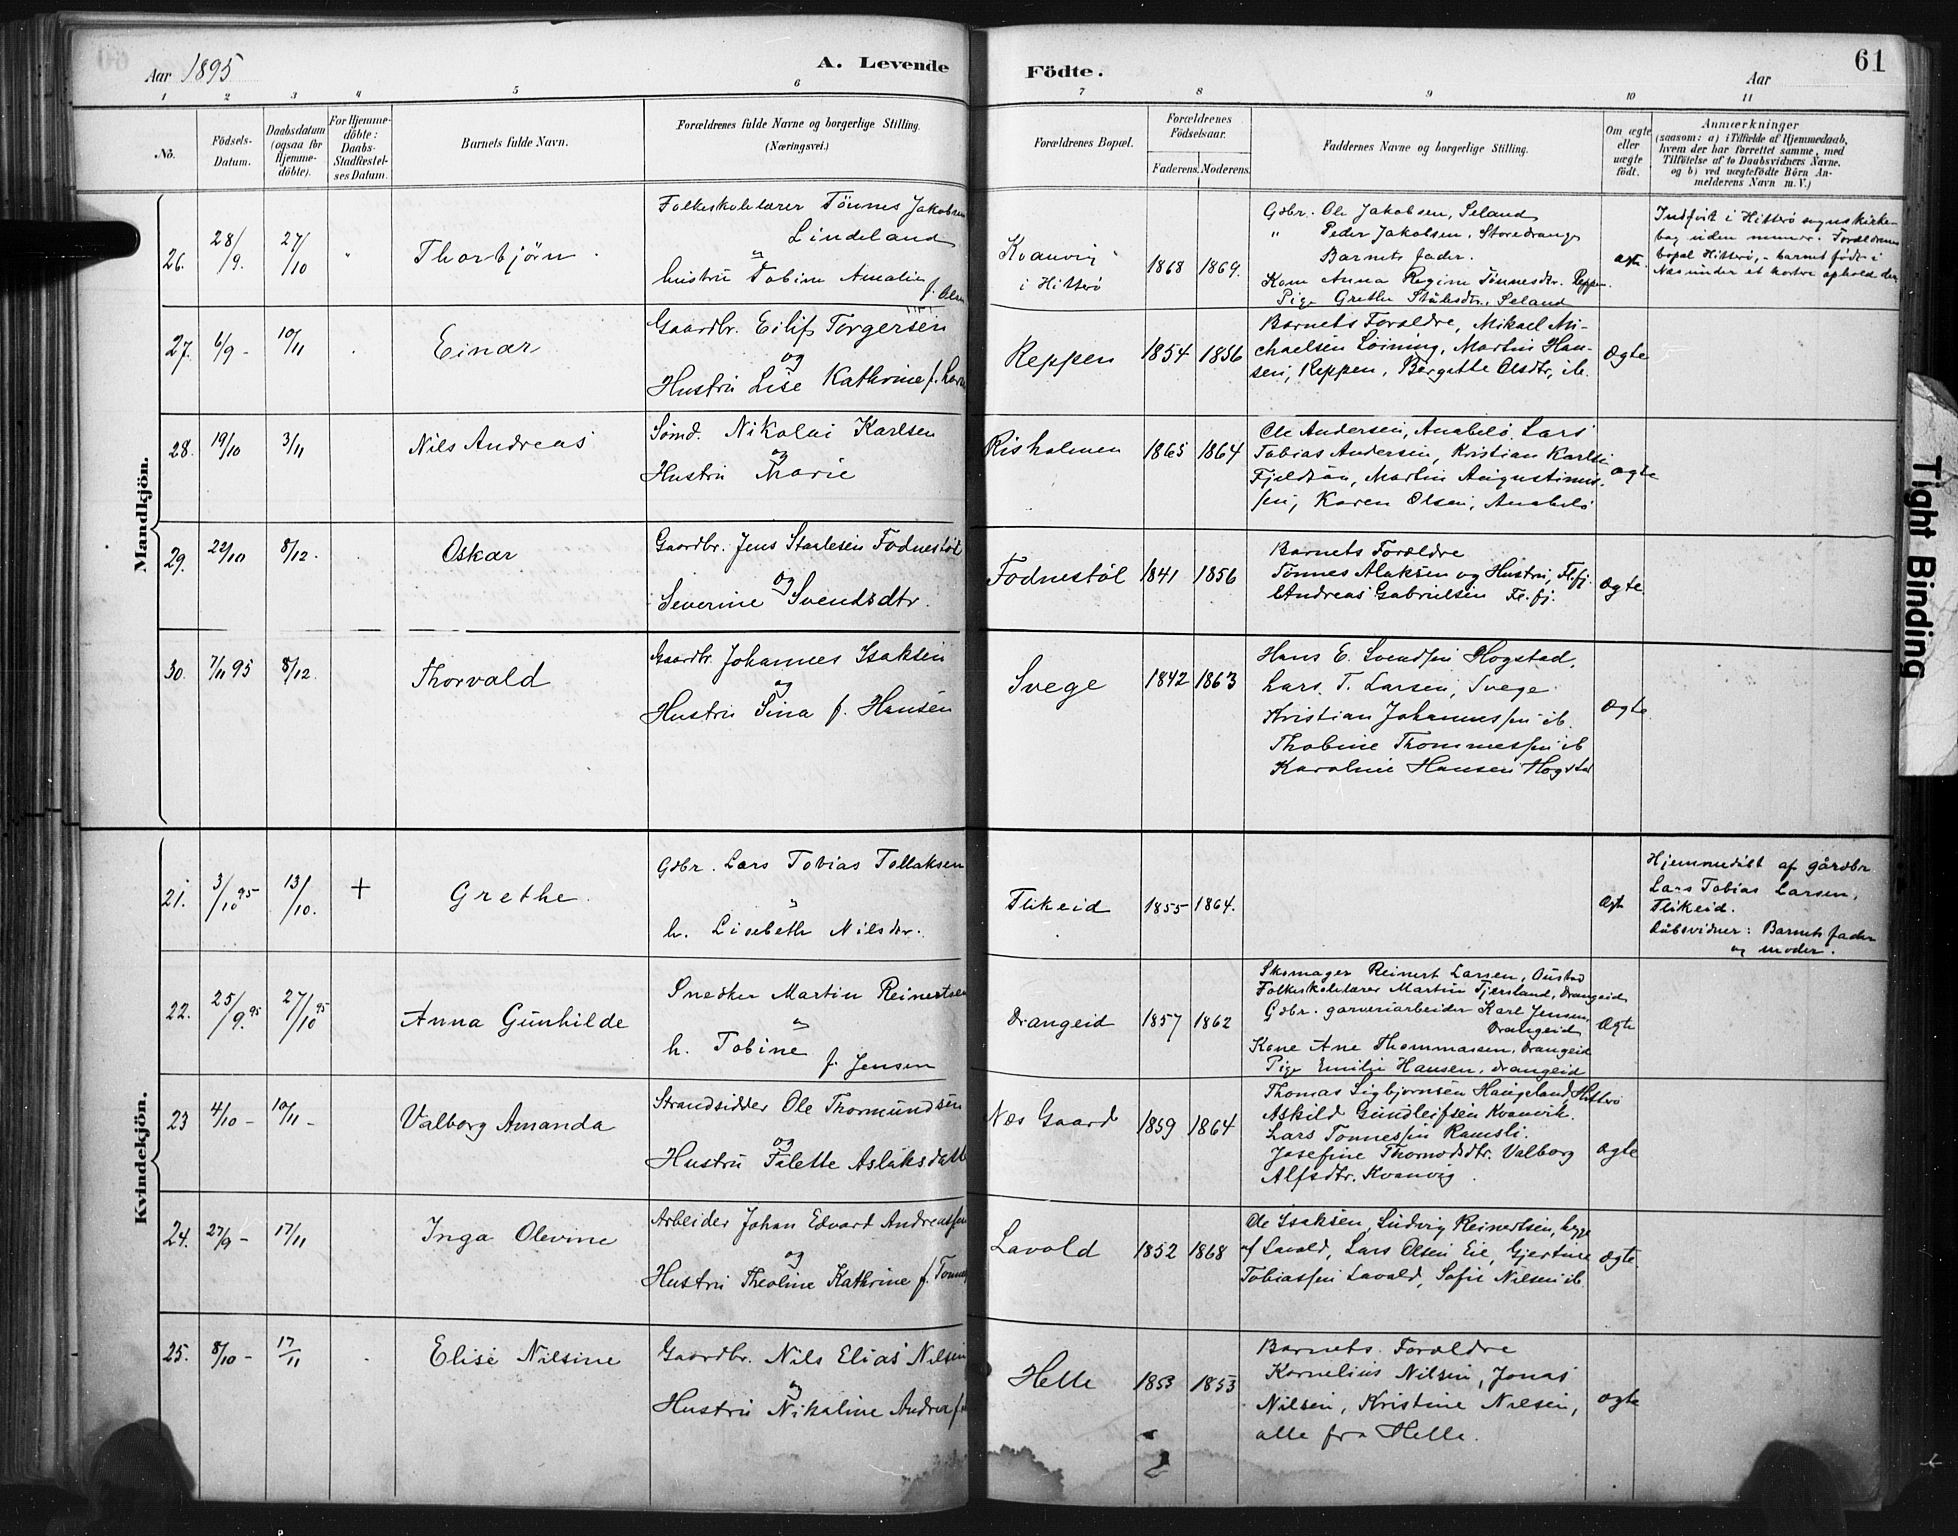 Aar 1895
A. Levende Födte.
Aar
61
1 2 3 4 5 6 7 8 9 10 11
No.
Födsels-
Datum.
Daabsdatum
(ogsaa for
Hjemme-
döbte).
For Hjemme-
döbte:
Daabs-
Stadfæstel-
ses Datum.
Barnets fulde Navn.
Forældrenes fulde Navne og borgerlige Stilling.
(Næringsvei.)
Forældrenes Bopæl.
Forældrenes
Födselsaar.
Faderens. Moderens.
Faddernes Navne og borgerlige Stilling.
Om ægte
eller
uægte
födt.
Anmærkninger
(saasom: a) i Tilfælde af Hjemmedaab,
hvem der har forrettet samme, med
Tilföielse af to Daabsvidners Navne.
og b) ved uægtefödte Börn An-
melderens Navn m. V.)
Mandkjön.
26. 28/9. 27/10 " Thorbjörn.
Folkeskolelærer Tönnes Jakobsen
Lindeland
"
hustru Tobine Amalie
f. Olsen
Kvanvig
i Hitterö
1868 1869.
Gdbr. Ole Jakobsen, Seland
" Peder Jakobsen, Storedrange
Barnets fader.
Kone Anna Regine Tönnesdtr. Reppen.
Pige Grethe Ståledtr., Seland
ægte.
Indført i Hitterö sognskirke-
bog uden numer. Forældrenes
bopæl Hitterö, - barnet födt i
Næs under et kortere ophold der
27. 6/9 - 10/11 Einar
Gaardbr. Eilif Torgersen
og
Hustru Lise Kathrine f. Lars
Reppen
1854 1856
Barnets Forældre, Mikael Mi-
chaelsen Löining, Martin Han-
sen, Reppen, Bergitte Olsdtr, ib.
Ægte
28. 19/10 3/11 Nils Andreas
Sömd. Nikolai Karlsen
og
Hustru Marie
Risholmen
1865 1864
Ole Andersen, Anabelö Lars
Tobias Andersen, Kristian Karlsen
Martin Augustinus-
sen, Karen Olsen, Anabelö
Ægte
29. 22/10 8/12. Oskar
Gaardbr. Jens Staalesen Fodnestöl
og
Severine Svendsdtr.
Fodnestöl
1841 1856
Barnets Forældre
Tönnes Aslaksen og Hustru, Fl.fj.
Andreas Gabrielsen Fl.fj.
Ægte.
30. 7/11 95 8/12. Thorvald
Gaardbr. Johannes Isaksen
og
Hustru Sina f. Hansen
Svege
1842 1863
Hans E. Svendsen Hogstad,
Lars T. Larsen, Svege
Kristian Johannessen ib.
Thobine Thommessen ib
Karoline Hansen Hogstad
Ægte.
Kvindekjön.
21. 3/10 95 13/10. + Grethe.
Gdbr. Lars Tobias Tollaksen
"
h. Lisebeth Nilsdtr.
Flikeid
1855 1864.
Ægte
Hjemmedöbt af gårdbr.
Lars Tobias Larsen,
Flikeid.
Dåbsvidner: Barnets fader
og moder.
22. 25/9. 95 27/10 95 Anna Gunhilde
Snedker Martin Reinertsen
"
h. Tobine
f. Jensen
Drangeid
1857 1862
Skomager Reinert Larsen, Oustad
Folkeskolelærer Martin Tjersland, Drangeid
Gdbr. garveriarbeider Karl Jensen,
Drangeid
Kone Ane Thommassen, Drangeid
Pige Emilie Hansen, Drangeid
Ægte
23 4/10 - 10/11 - Valborg Amanda
Strandsidder Ole Thormundsen
og
Hustru Talette Aslaksdatter
Næs Gaard
1859 1864
Thomas Sigbjörnsen Haugeland, Hitterö
Askild Gundleifsen Kvanvik.
Lars Tonnessen Ramsli.
Josefine Thormodsdtr. Valborg
Alfsdtr. Kvanvig.
Ægte
24. 27/9 - 17/11 Inga Olevine
Arbeider Johan Edvard Andreassen
og
Hustru Theoline Kathrine f. Tonnes
Lavold
1852 1868
Ole Isaksen, Ludvig Reinertsen, begge
af Lavold, Lars Olsen Eie, Gjertine
Tobiassen Lavold, Sofie Nilsen ib
Ægte.
25. 8/10 - 17/11 Elise Nilsine
Gaardbr. Nils Elias Nilsen
og
Hustru Nikoline Andrea f.
Helle
1853 1853
Barnets Forældre
Kornelius Nilsen, Jonas
Nilsen, Kristine Nilsen,
alle fra Helle.
Ægte
Tight Binding